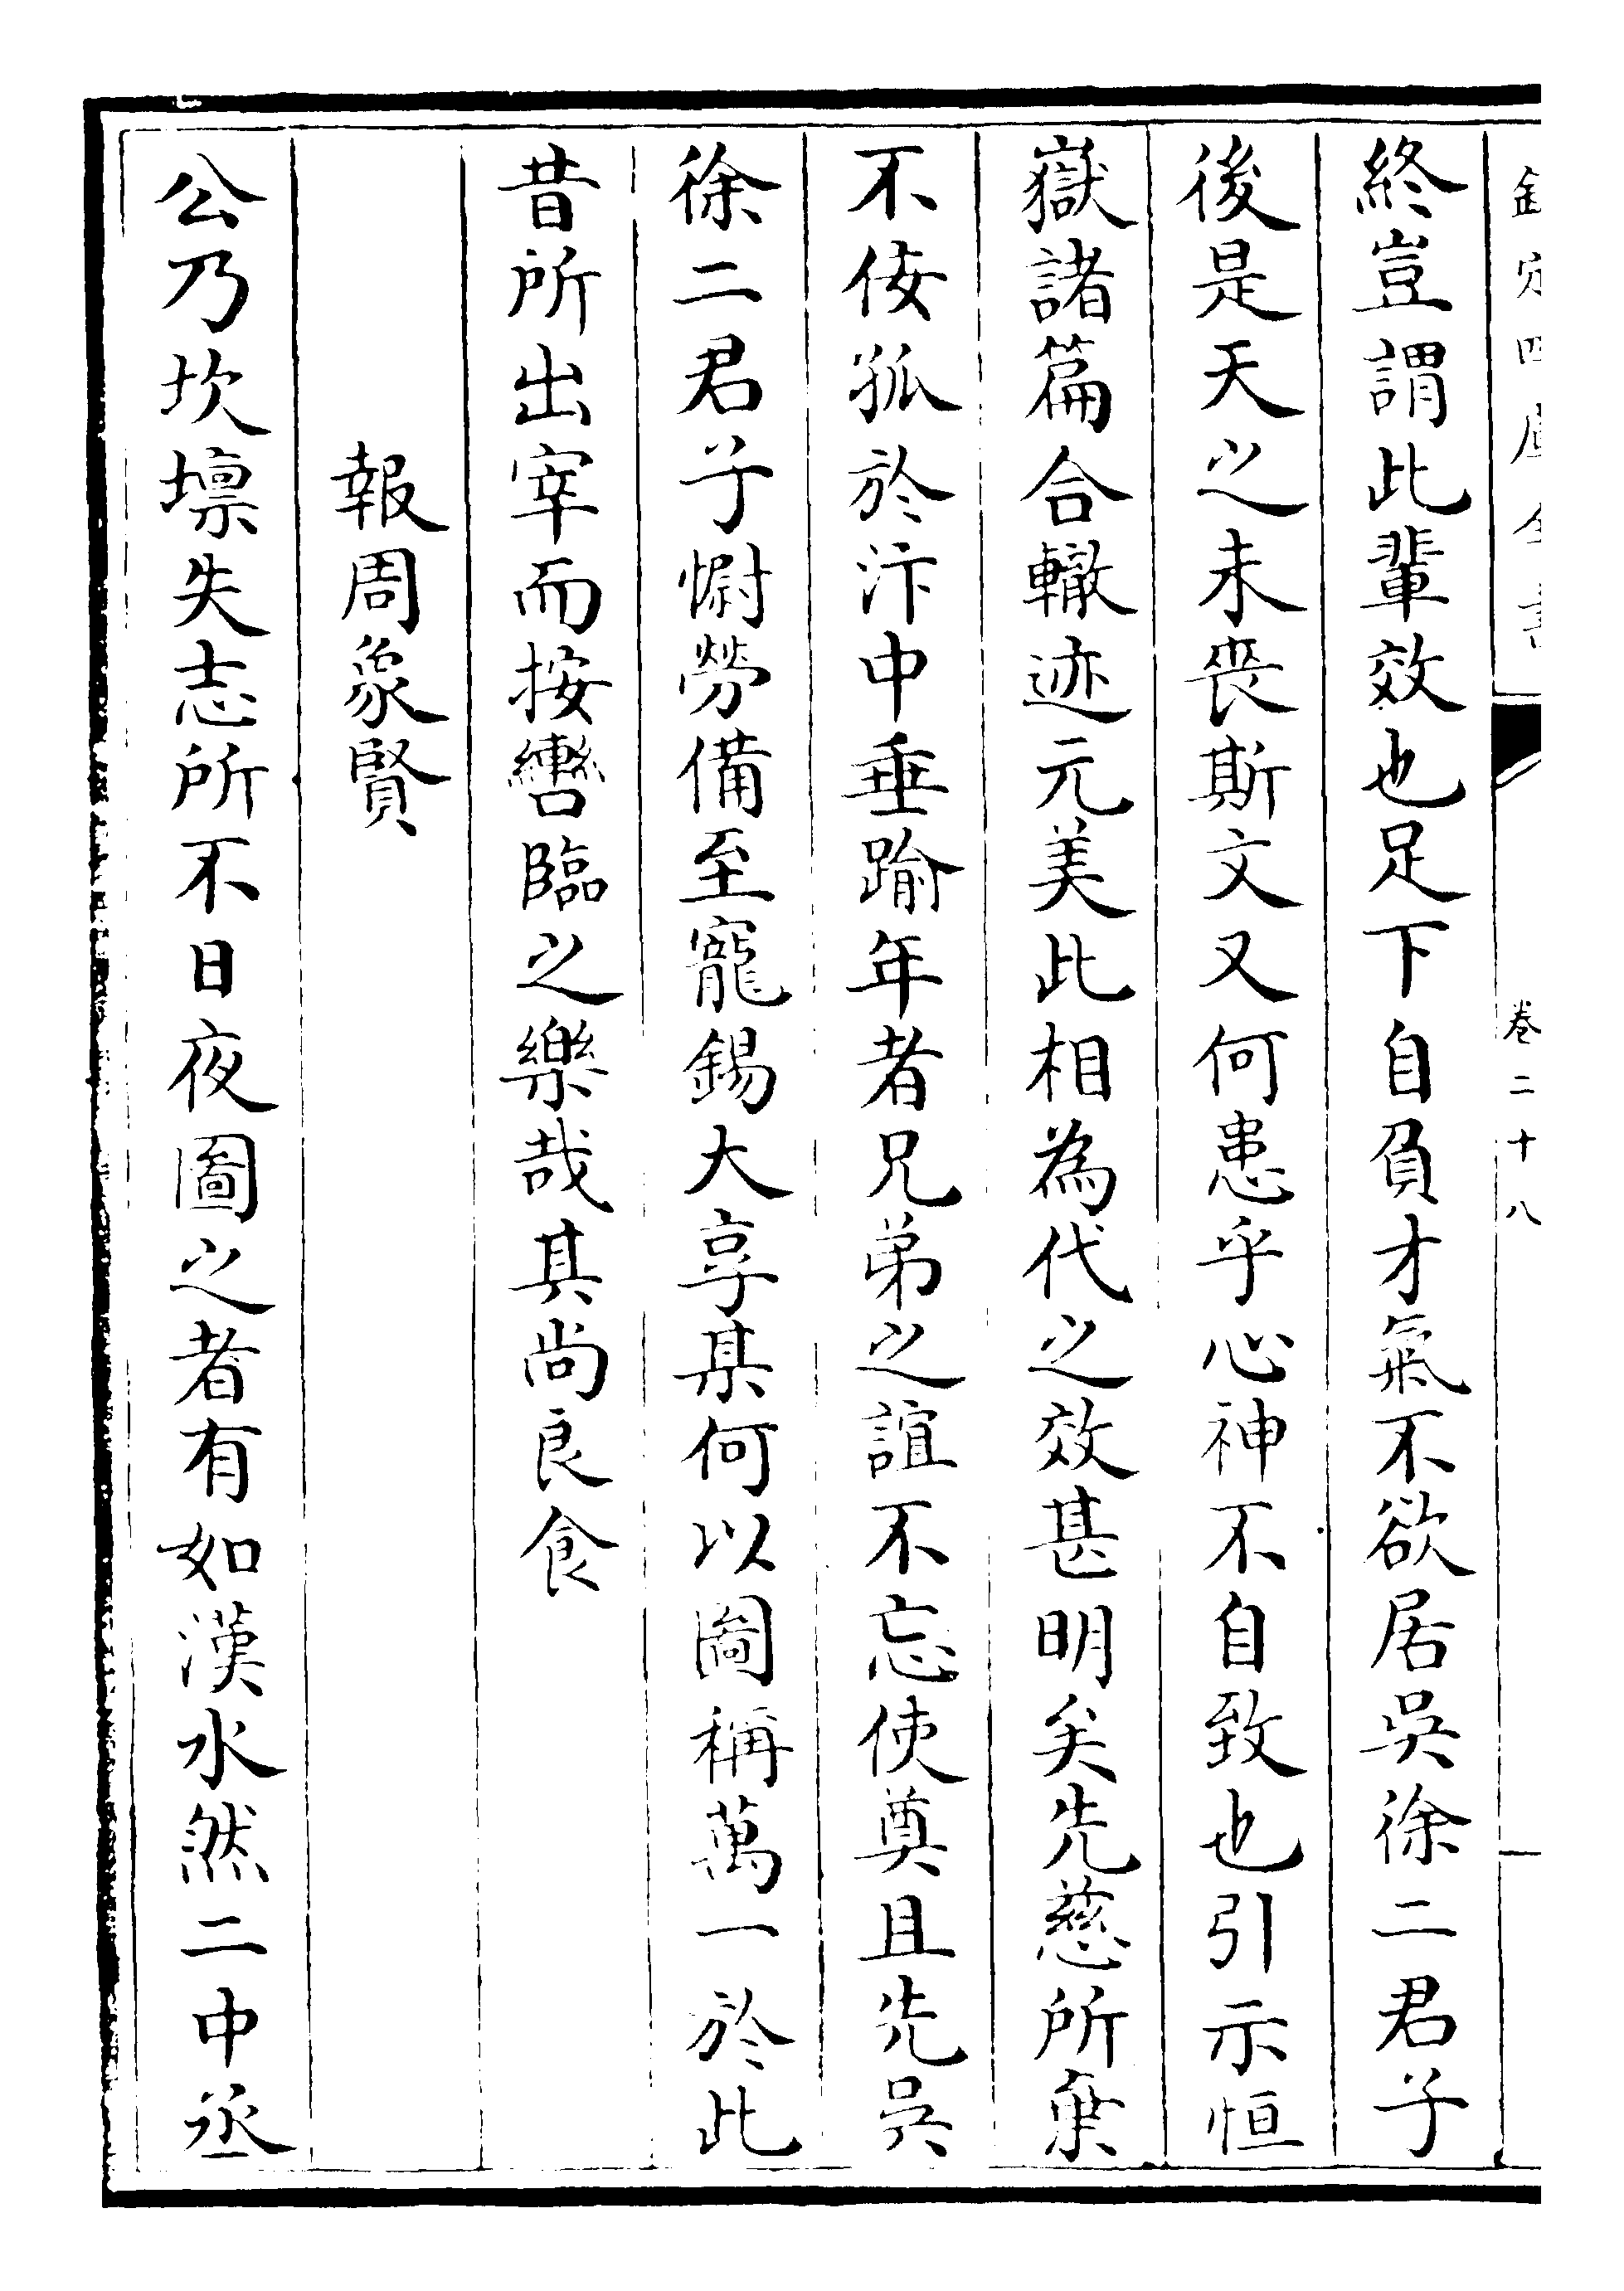 欽定四庫全書
卷二十八
終豈謂此輩效也足下自負才氣不欲居吳徐二君子
後是天之未喪斯文又何患乎心神不自致也引示恒
嶽諸篇合轍迹元美此相為代之效甚明矣先慈所棄
不佞孤於汴中垂踰年者兄弟之誼不忘使奠且先吳
徐二君子慰勞備至寵錫大享某何以圖稱萬一於此
昔所出宰而按轡臨之樂哉其尚良食
報周象賢
公乃坎壈失志所不日夜圖之者有如漢水然二中丞